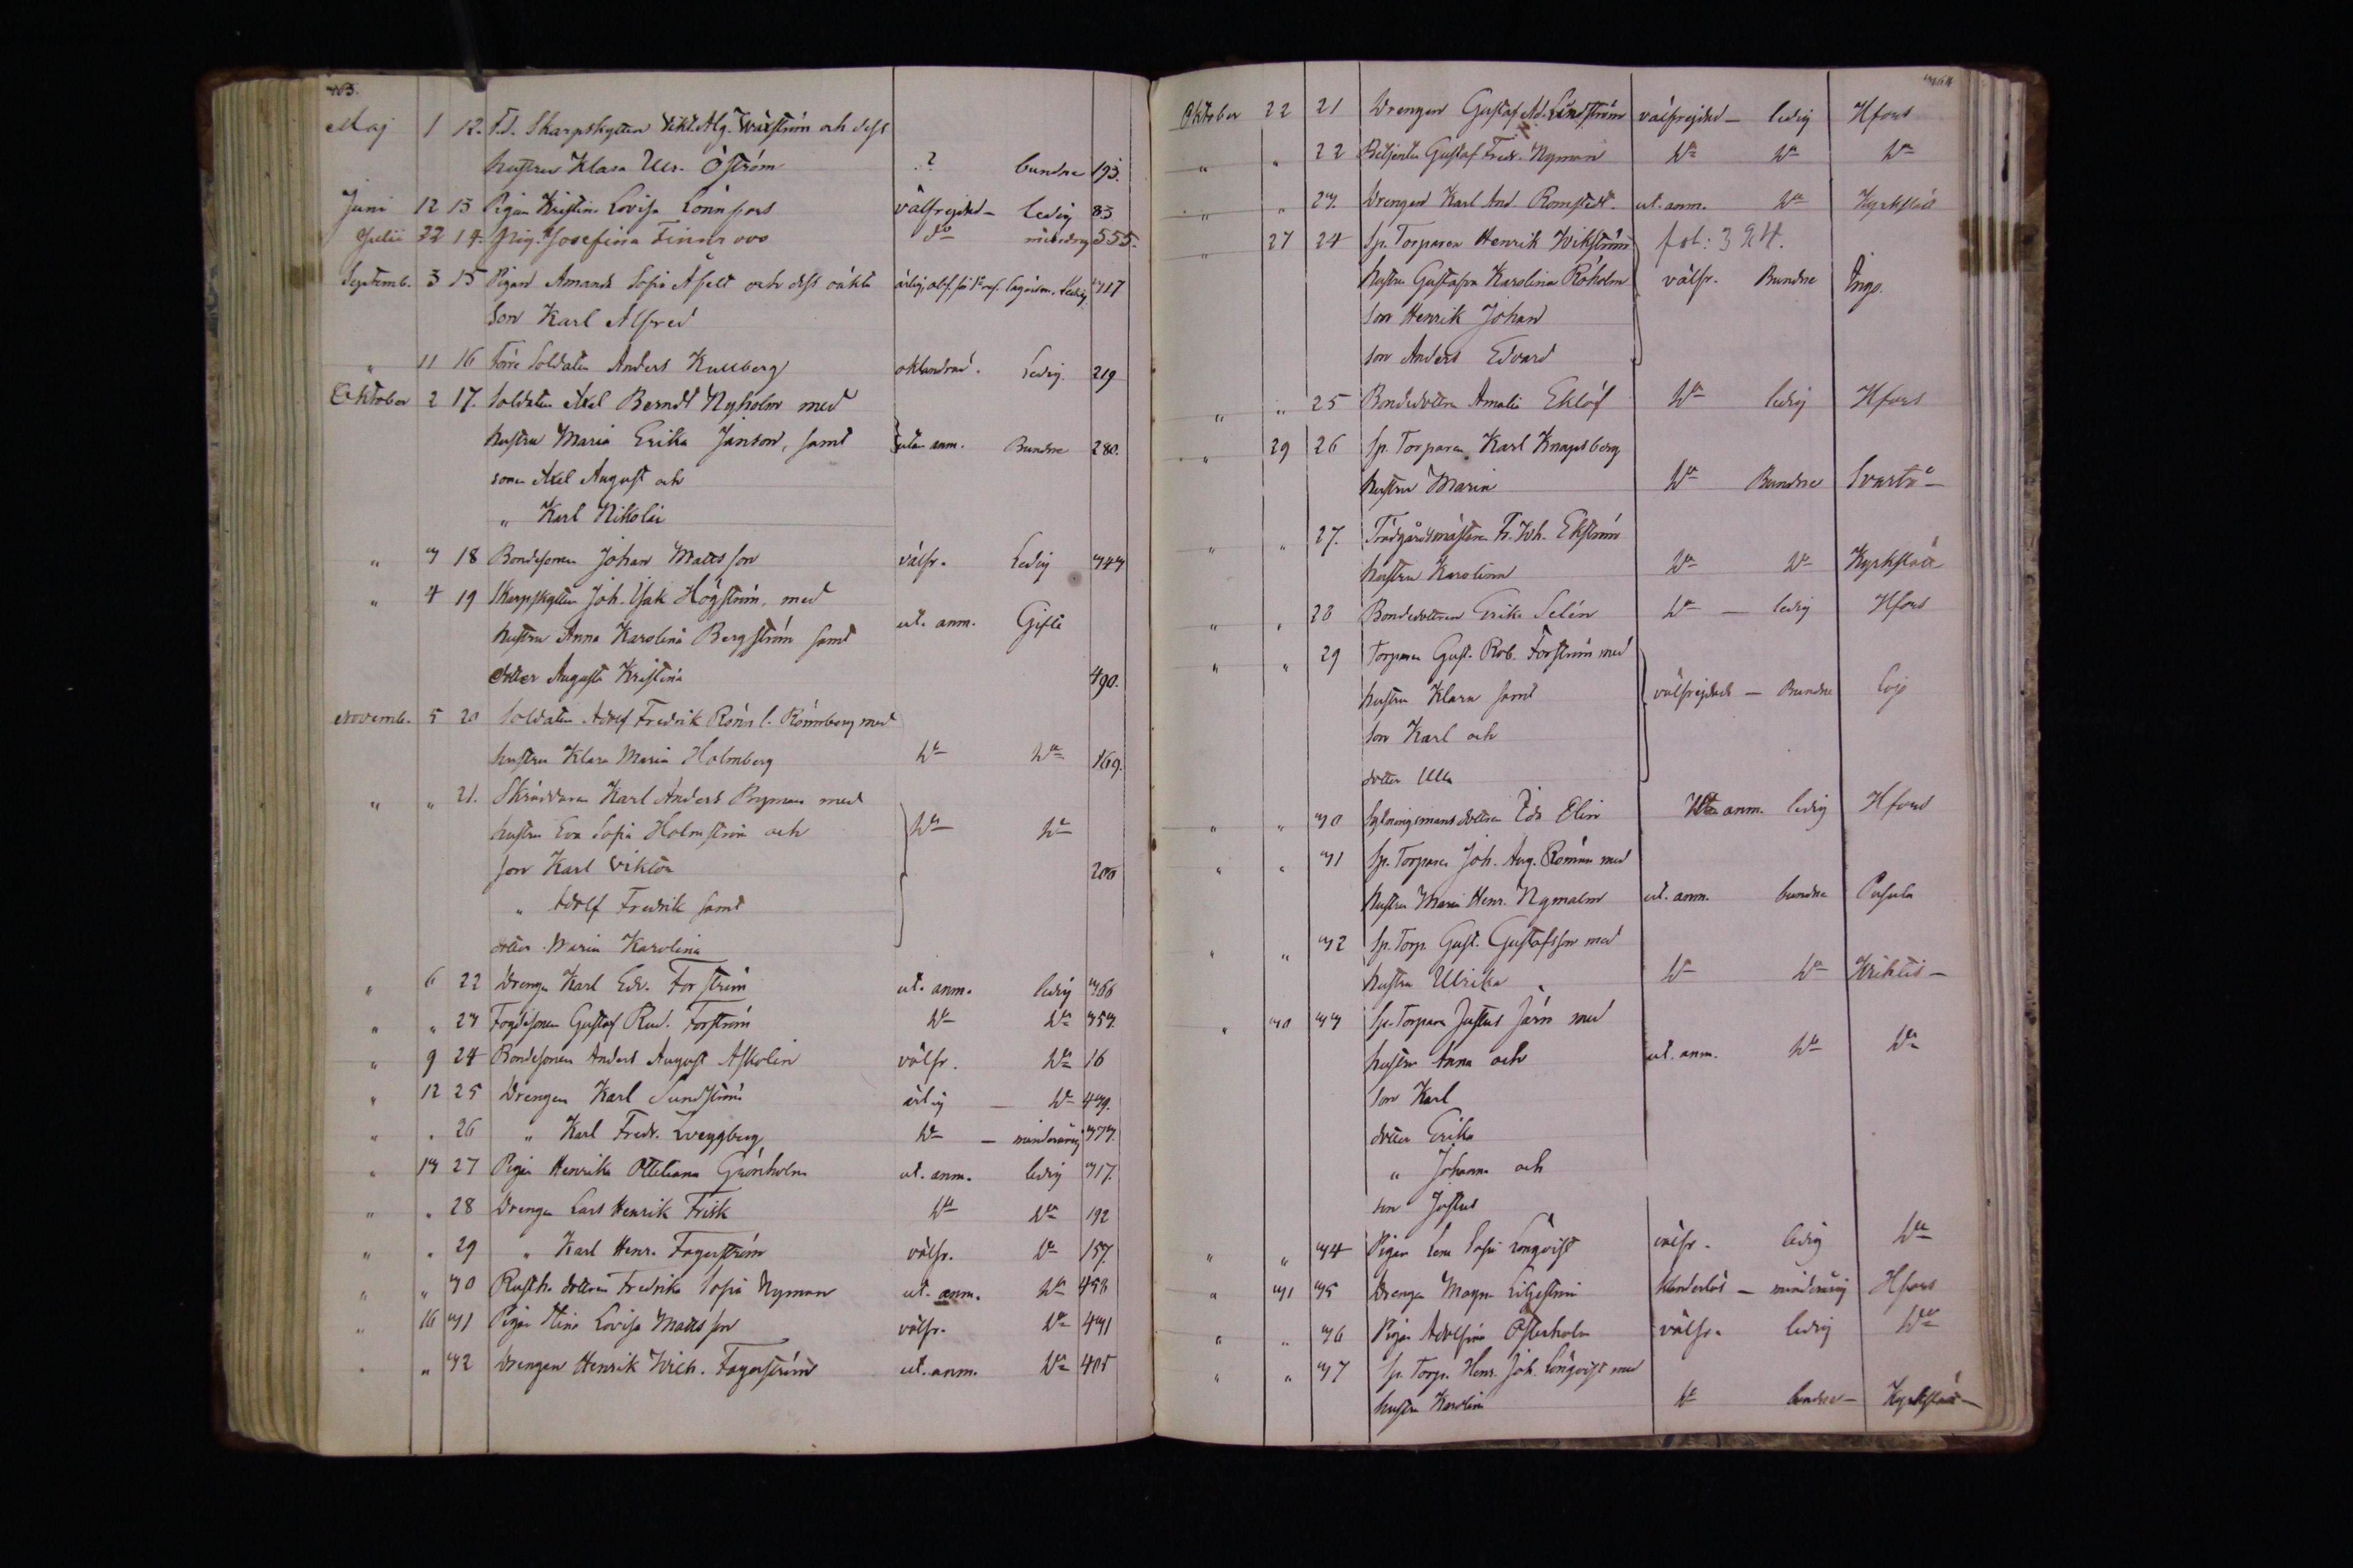 Maj 1 12. F.d. Skarpskytten Vikt. Alg. Wäxström och dess
hustru Klara Ulr. Öström ? bundne 193.
Juni 12 13 Pigan Kristina Lovisa Lönnfors välfrejdad - ledig 83
Julii 22 14 Pig. Josefina Finnroos do 555.
Septemb. 3 15 Pigan Amanda Sofia Åfelt och dess oäkta ledig 317
Son Karl Alfred
" 11 16 Förre Soldaten Anders Kullberg oklandrad. Ledig. 219
Oktober 2 17. Soldaten Axel Berndt Nyholm med
hustru Maria Erika Janson, samt utan anm. Bundne 280.
sonen Axel August och
" Karl Nikolai
" 3 18 Bondesonen Johan Mattsson välfr. Ledig 343
" 4 19 Skarpskytten Joh. Isak Högström, med
hustru Anna Karolina Bergström samt ut. anm. Gifte
dotter Augusta Kristina 490.
Novemb. 5 20 Soldaten Adolf Fredrik Rönn l. Rönnberg med
hustru Klara Maria Holmberg Da Da 169.
" " 21. Skräddaren Karl Anders Ryman med
hustru Eva Sofia Holmström och Da Da
son Karl Viktor 200
" Adolf Fredrik samt
dotter Maria Karolina
" 6 22 Drengen Karl Edv. Forström ut. anm. ledig 366
" " 23 Fogdesonen Gustaf Rud. Forström Da Da 353.
" 9 24 Bondesonen Anders August Askolin välfr. Da 16
" 12 25 Drengen Karl Sundström ärlig - Da 439.
" " 26 " Karl Fredr. Da - minderårig 373.
" 13 27 Pigan Henrika Ottiliana Grönholm ut. anm. ledig 317.
" " 28 Drengen Lars Henrik Frisk Da Da 192
" " 29 " Karl Henr. Fagerström välfr. Da 157.
" " 30 Rusth. dottren Fredrika Sofia Nyman ut. anm. Da 456
" 16 31 Pigan Stina Lovisa Mattsson välfr. Da 431
" " 32 Drengen Henrik Wilh. Fagerström ut. anm. Da 405
364
Oktober 22 21 Drengen Gustaf Ad. Lindström välfrejdad - ledig Hfors
" " 22 Betjenten Gustaf Fredr. Nyman Da Da Da
" " 23. Drengen Karl And. Romstedt. ut. anm. Da Kyrkslätt
" 27 24 Sp. Torparen Henrik Wikström fol: 394.
hustru Gustafva Karolina Röholm välfr. Bundne Ingo.
son Henrik Johan
son Anders Edvard
" " 25 Bondedottren Amalia Eklöf Da ledig Hfors
" 29 26 Sp. Torparen Karl Knapsberg
hustru Maria Da Bundne Svartå -
" " 27. Trädgårdsmästaren F. Wh. Ekström
hustru Karolina Da Da Kyrkslätt
" " 28 Bondedottren Erika Selén Da - ledig Hfors
" " 29 Torparen Gust. Rob. Forström med
hustru Klara samt välfrejdade - Bundne Lojo
son Karl och
dotter Ulla
" " 30 Sexmansdottren Ida Elin Utan anm. ledig Hfors
" " 31 Sp. Torparen Joh. Aug. Román med
hustru Maria Henr. Nymalm ut. anm. bundne Pusula
" " 32 Sp. Torp. Gust. Gustafsson med
hustru Ulrika Da Da Wichtis -
" 30 33 Sp. Torparen Justus Järn med
hustru Anna och ut. anm. Da Da
son Karl
dotter Erika
" Johanna och
son Justus
" " 34 Pigan Lena Sofia Lönqvist välfr. ledig Da
" 31 35 Drengen Magn. Liljeström klanderlös - minderårig Hfors
" " 36 Pigan Adolfina Österholm välfr. ledig Da
" " 37 Sp. Torp. Henr. Joh. Lönqvist med
hustru Karolina Da bundne - Kyrkslätt -